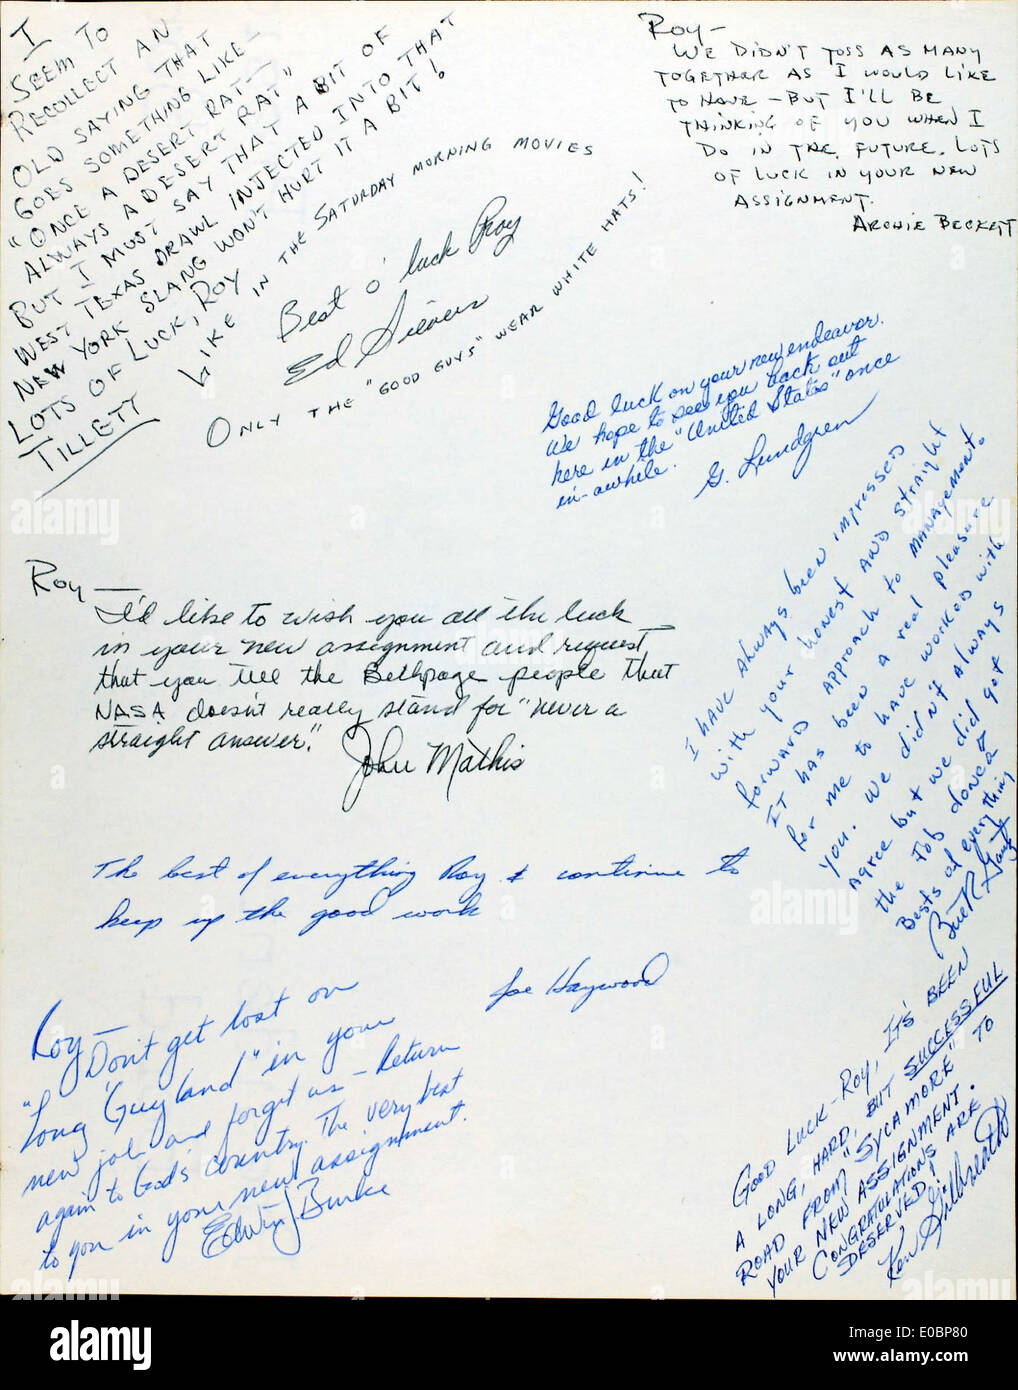 I
SEEM TO
RECOLLECT AN
OLD SAYING THAT
GOES SOMETHING LIKE-
"ONCE A DESERT RAT-
ALWAYS A DESERT RAT"
BUT I MUST SAY THAT A BIT OF
WEST TEXAS DRAWL INJECTED INTO THAT
NEW YORK SLANG WON'T HURT IT A BIT!
LOTS OF LUCK, ROY
TILLETT
LIKE IN THE SATURDAY MORNING MOVIES
Best o' luck Roy
Ed Sievers
ONLY THE "GOOD GUYS" WEAR WHITE HATS!
ROY-
WE DIDN'T TOSS AS MANY
TOGETHER AS I WOULD LIKE
TO HAVE - BUT I'LL BE
THINKING OF YOU WHEN I
DO IN THE FUTURE. LOTS
OF LUCK IN YOUR NEW
ASSIGNMENT.
ARCHIE BECKETT
Good luck on your new endeavor.
We hope to see you back out
here in the "United States" once
in-awhile.
G. Lundgren
I have always been impressed
with your honest and straight
forward approach to management.
It has been a real pleasure
for me to have worked with
you. We didn't always
agree but we did get
the job done &
Bests of everything
Roy-
I'd like to wish you all the luck
in your new assignment and request
that you tell the Bethpage people that
NASA doesn't really stand for "never a
straight answer."
John Mathis
The best of everything Roy & continue to
keep up the good work
Joe Haywood
Roy-
Don't get lost on
"Long 'Guyland" in your
new job and forget us - return
again to God's country. The very best
to you in your new assignment.
Edwin J Burke
GOOD LUCK-ROY, IT'S BEEN
A LONG, HARD, BUT SUCCESSFUL
ROAD FROM "SYCAMORE" TO
YOUR NEW ASSIGNMENT.
CONGRATULATIONS ARE
DESERVED!
Ken Gilbreath
alamy
alamy
alamy
alamy
alamy
alamy
alamy
alamy
alamy
Image ID: E0BP80
www.alamy.com